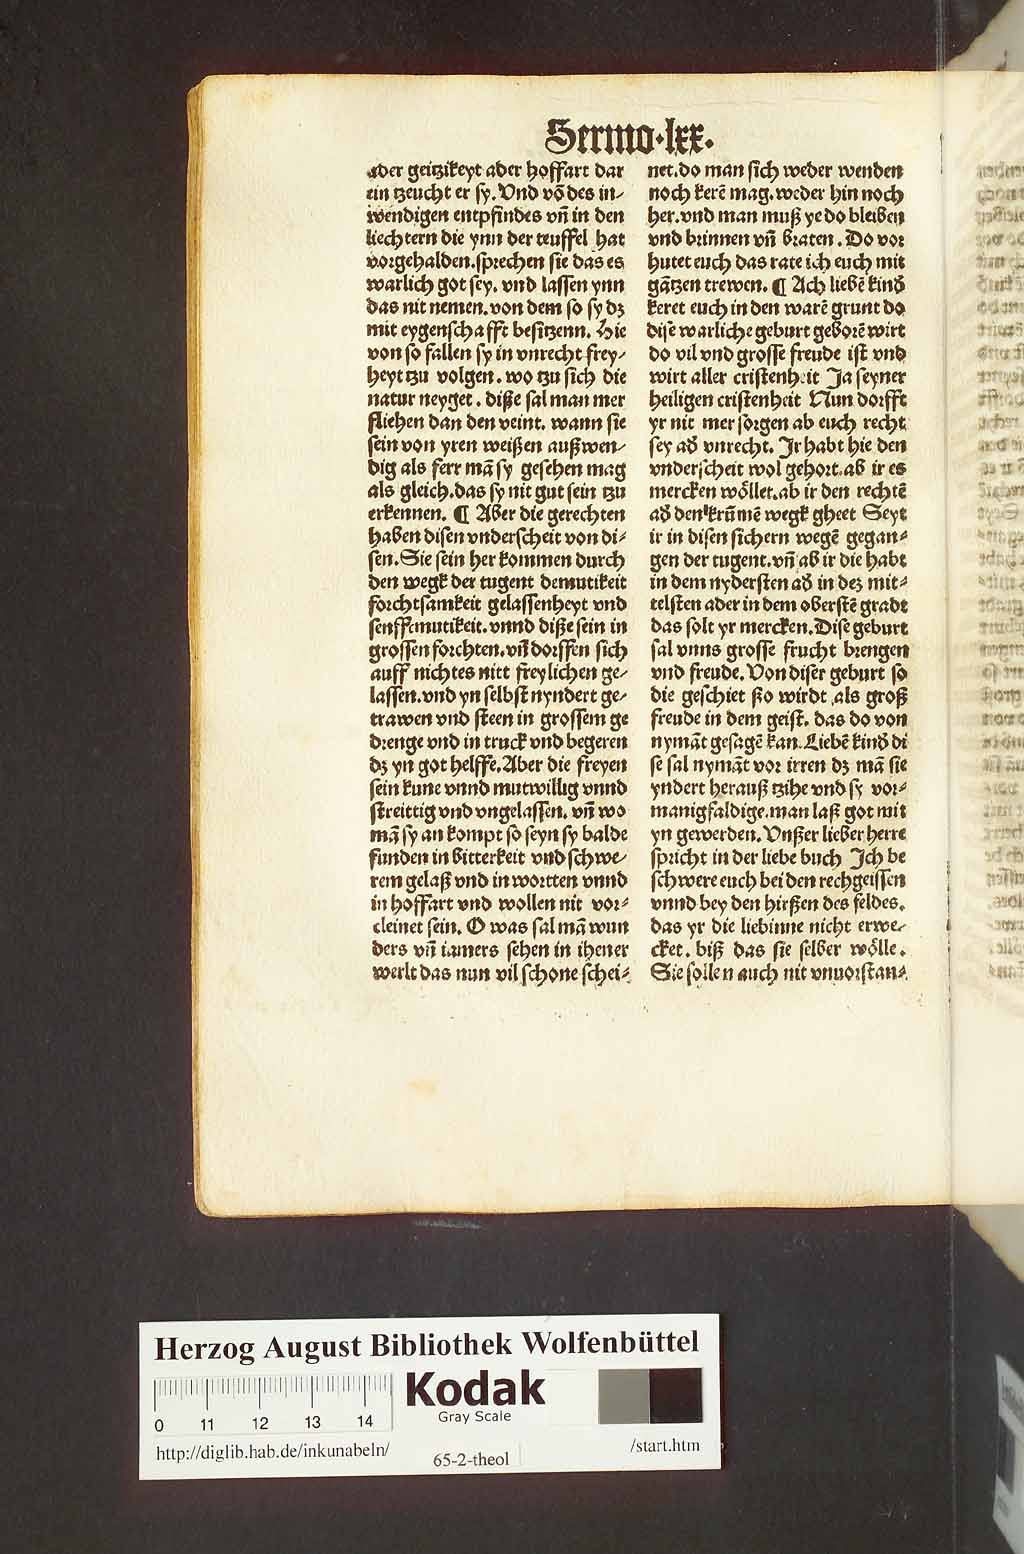 Sermo·lxx.
ader geitzikeyt ader hoffart dar
ein tzeucht er sy. Vnd võ des in⸗
wendigen entpfindes vñ in den
liechtern die ynn der teuffel hat
vorgehalden. sprechen sie das es
warlich got sey. vnd lassen ynn
das nit nemen. von dem so sy dz
mit eygenschafft besitzenn. Hie
von so fallen sy in vnrecht frey⸗
heyt tzu volgen. wo tzu sich die
natur neyget. diße sal man mer
fliehen dan den veint. wann sie
sein von yren weißen außwen⸗
dig als ferr mã sy gesehen mag
als gleich. das sy nit gut sein tzu
erkennen. ¶ Aber die gerechten
haben disen vnderscheit von di⸗
sen. Sie sein her kommen durch
den wegk der tugent demutikeit
forchtsamkeit gelassenheyt vnd
senffemutikeit. vnnd diße sein in
grossen forchten. vñ dorffen sich
auff nichtes nitt freylichen ge⸗
lassen. vnd yn selbst nyndert ge⸗
trawen vnd steen in grossem ge
drenge vnd in truck vnd begeren
dz yn got helffe. Aber die freyen
sein kune vnnd mutwillig vnnd
streittig vnd vngelassen. vñ wo
mã sy an kompt so seyn sy balde
funden in bitterkeit vnd schwe⸗
rem gelaß vnd in wortten vnnd
in hoffart vnd wollen nit vor⸗
cleinet sein. O was sal mã wun
ders vñ iamers sehen in ihener
werlt das nun vil schone schei⸗
net. do man sich weder wenden
noch kerẽ mag. weder hin noch
her. vnd man muß ye do bleiben
vnd brinnen vñ braten. Do vor
hutet euch das rate ich euch mit
gãtzen trewen. ¶ Ach liebẽ kind
keret euch in den warẽ grunt do
dise warliche geburt geborẽ wirt
do vil vnd grosse freude ist vnd
wirt aller cristenheit Ja seyner
heiligen cristenheit Nun dorfft
yr nit mer sorgen ab euch recht
sey ad vnrecht. Jr habt hie den
vnderscheit wol gehort. ab ir es
mercken wöllet. ab ir den rechtẽ
ad den krũmẽ wegk gheet Seyt
ir in disen sichern wegẽ gegan⸗
gen der tugent. vñ ab ir die habt
in dem nydersten ad in dez mit⸗
telsten ader in dem oberstẽ gradt
das solt yr mercken. Dise geburt
sal vnns grosse frucht brengen
vnd freude. Von diser geburt so
die geschiet ßo wirdt als groß
freude in dem geist. das do von
nymãt gesagẽ kan. Liebẽ kind di
se sal nymãt vor irren dz mã sie
yndert herauß tzihe vnd sy vor⸗
manigfaldige. man laß got mit
yn gewerden. Vnßer lieber herre
spricht in der liebe buch Ich be
schwere euch bei den rechgeissen
vnnd bey den hirßen des feldes.
das yr die liebinne nicht erwe⸗
cket. biß das sie selber wölle.
Sie sollen auch nit vnuorstan⸗
Herzog August Bibliothek Wolfenbüttel
Kodak
Gray Scale
0 11 12 13 14
http://diglib.hab.de/inkunabeln/
65-2-theol
/start.htm